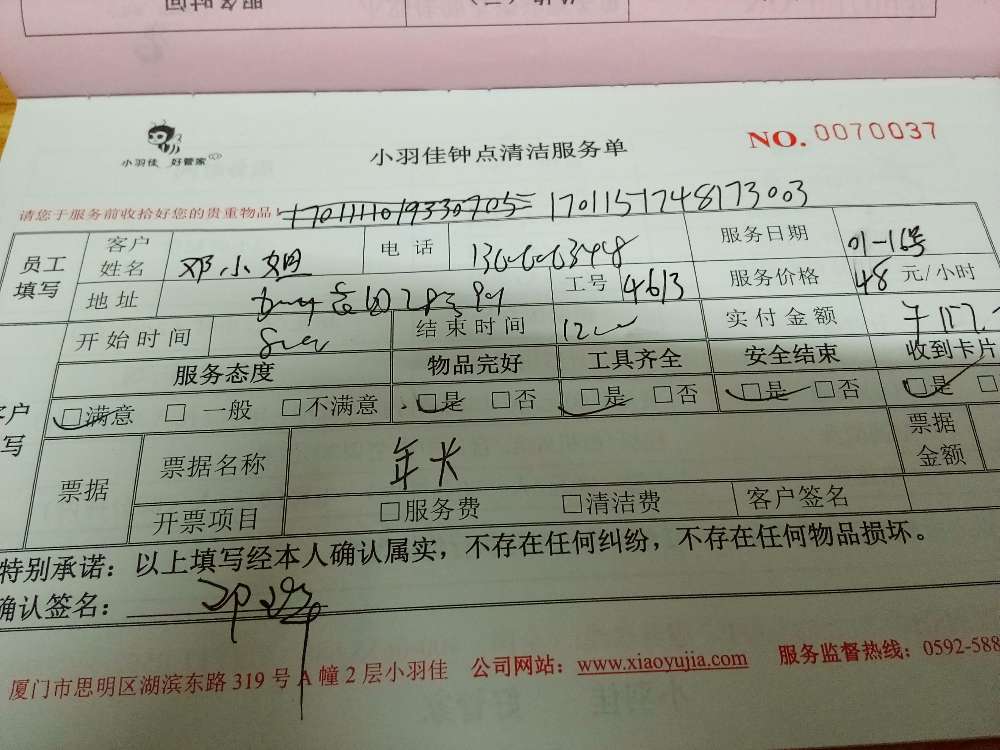 服务时间
小羽佳 好管家
小羽佳钟点清洁服务单
NO. 0070037
请您于服务前收拾好您的贵重物品!
1701157748173003
员工填写 客户姓名 邓小姐 电话 服务日期 01-16号
地址 工号 4613 服务价格 48 元/小时
开始时间 结束时间 实付金额
服务态度 物品完好 工具齐全 安全结束 收到卡片
□满意 □ 一般 □不满意 □是 □否 □是 □否 □是 □否 □是
票据 票据名称 年卡 票据金额
开票项目 □服务费 □清洁费 客户签名
特别承诺：以上填写经本人确认属实，不存在任何纠纷，不存在任何物品损坏。
确认签名：
厦门市思明区湖滨东路 319 号 A 幢 2 层小羽佳 公司网站：www.xiaoyujia.com 服务监督热线：0592-588